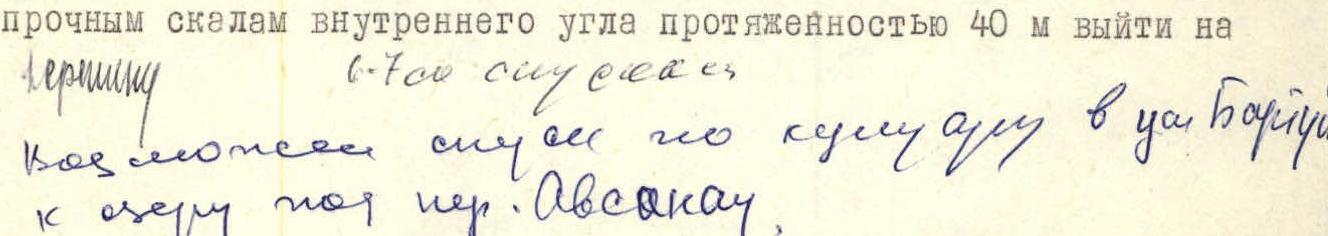 прочным скалам внутреннего угла протяженностью 40 м выйти на
вершину 6-7 спуска
Возможен спуск по кулуару в ущ
к озеру под пер. Авсанау